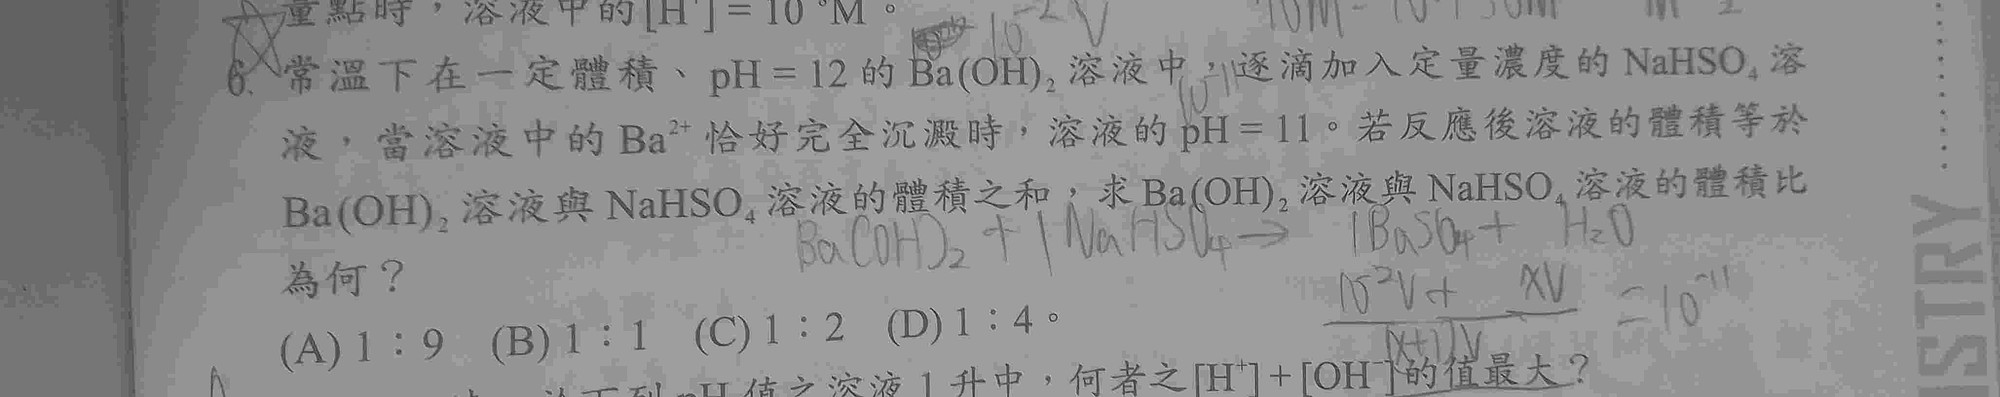 量點時，溶液中的[H⁺] = 10 M。
10⁻² V
6. 常溫下在一定體積、pH = 12 的 Ba(OH)₂ 溶液中，逐滴加入定量濃度的 NaHSO₄ 溶
10⁻¹¹
液，當溶液中的 Ba²⁺ 恰好完全沉澱時，溶液的 pH = 11。若反應後溶液的體積等於
Ba(OH)₂ 溶液與 NaHSO₄ 溶液的體積之和，求 Ba(OH)₂ 溶液與 NaHSO₄ 溶液的體積比
Ba(OH)₂ + 1NaHSO₄ → 1BaSO₄ + H₂O
為何？
10⁻²V + XV
(X+1)V
= 10⁻¹¹
(A) 1：9 (B) 1：1 (C) 1：2 (D) 1：4。
pH 值之溶液 1 升中，何者之[H⁺] + [OH⁻]的值最大？
ISTRY